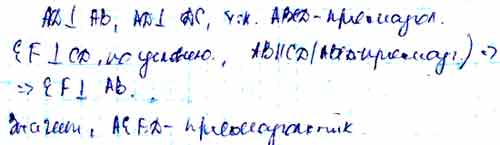 AD⊥ AB, AD⊥ DC, т.к. ABCD - прямоугол.
EF⊥CD, по условию, AB||CD (ABCD-прямоуг.) ⇒
⇒ EF⊥ AB.
Значит, AEFD - прямоугольник.